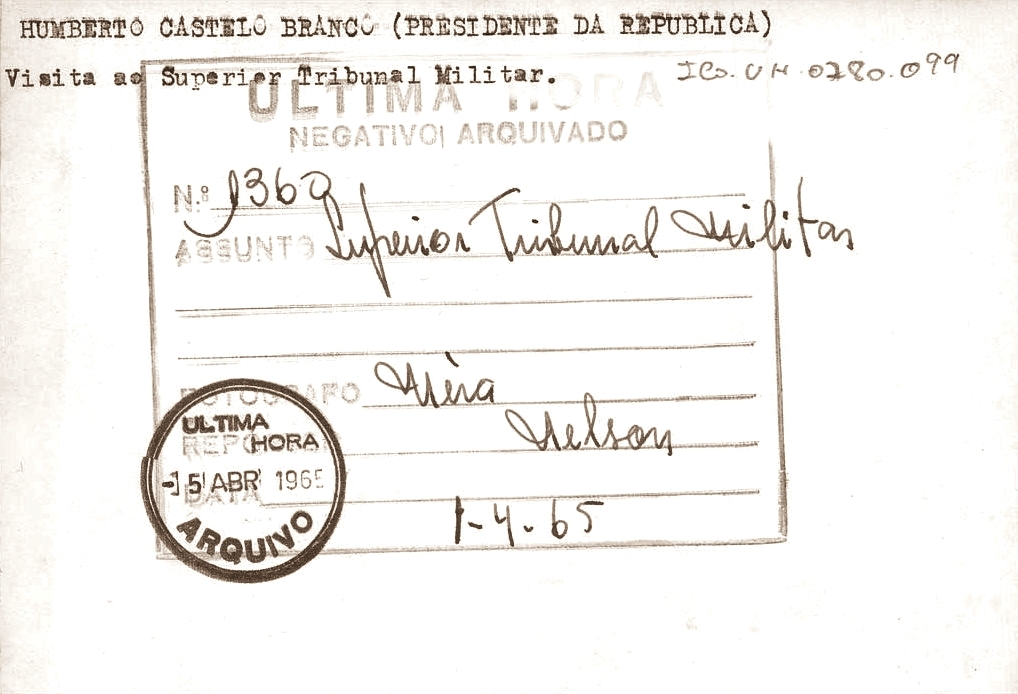 HUMBERTO CASTELO BRANCO (PRESIDENTE DA REPUBLICA)
Visita ao Superior Tribunal Militar.
ICO.UH.0780.099
ULTIMA HORA
NEGATIVO ARQUIVADO
N.º 1369
ASSUNTO Superior Tribunal Militar
FOTOGRAFO
Nelson
DATA 1-4-65
ULTIMA
HORA
5 ABR 1965
ARQUIVO